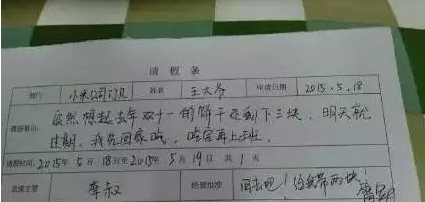 请假条
部门 小米公司 姓名 王大爷 申请日期 2015.5.18
请假事由: 忽然想起去年双十一的饼干还剩下三块,明天就
过期,我先回家吃,吃完再上班。
请假时间:2015年5月18日至2015年5月19日 共1天
直属主管 李叔 经理批准 回去吧!给我带两块